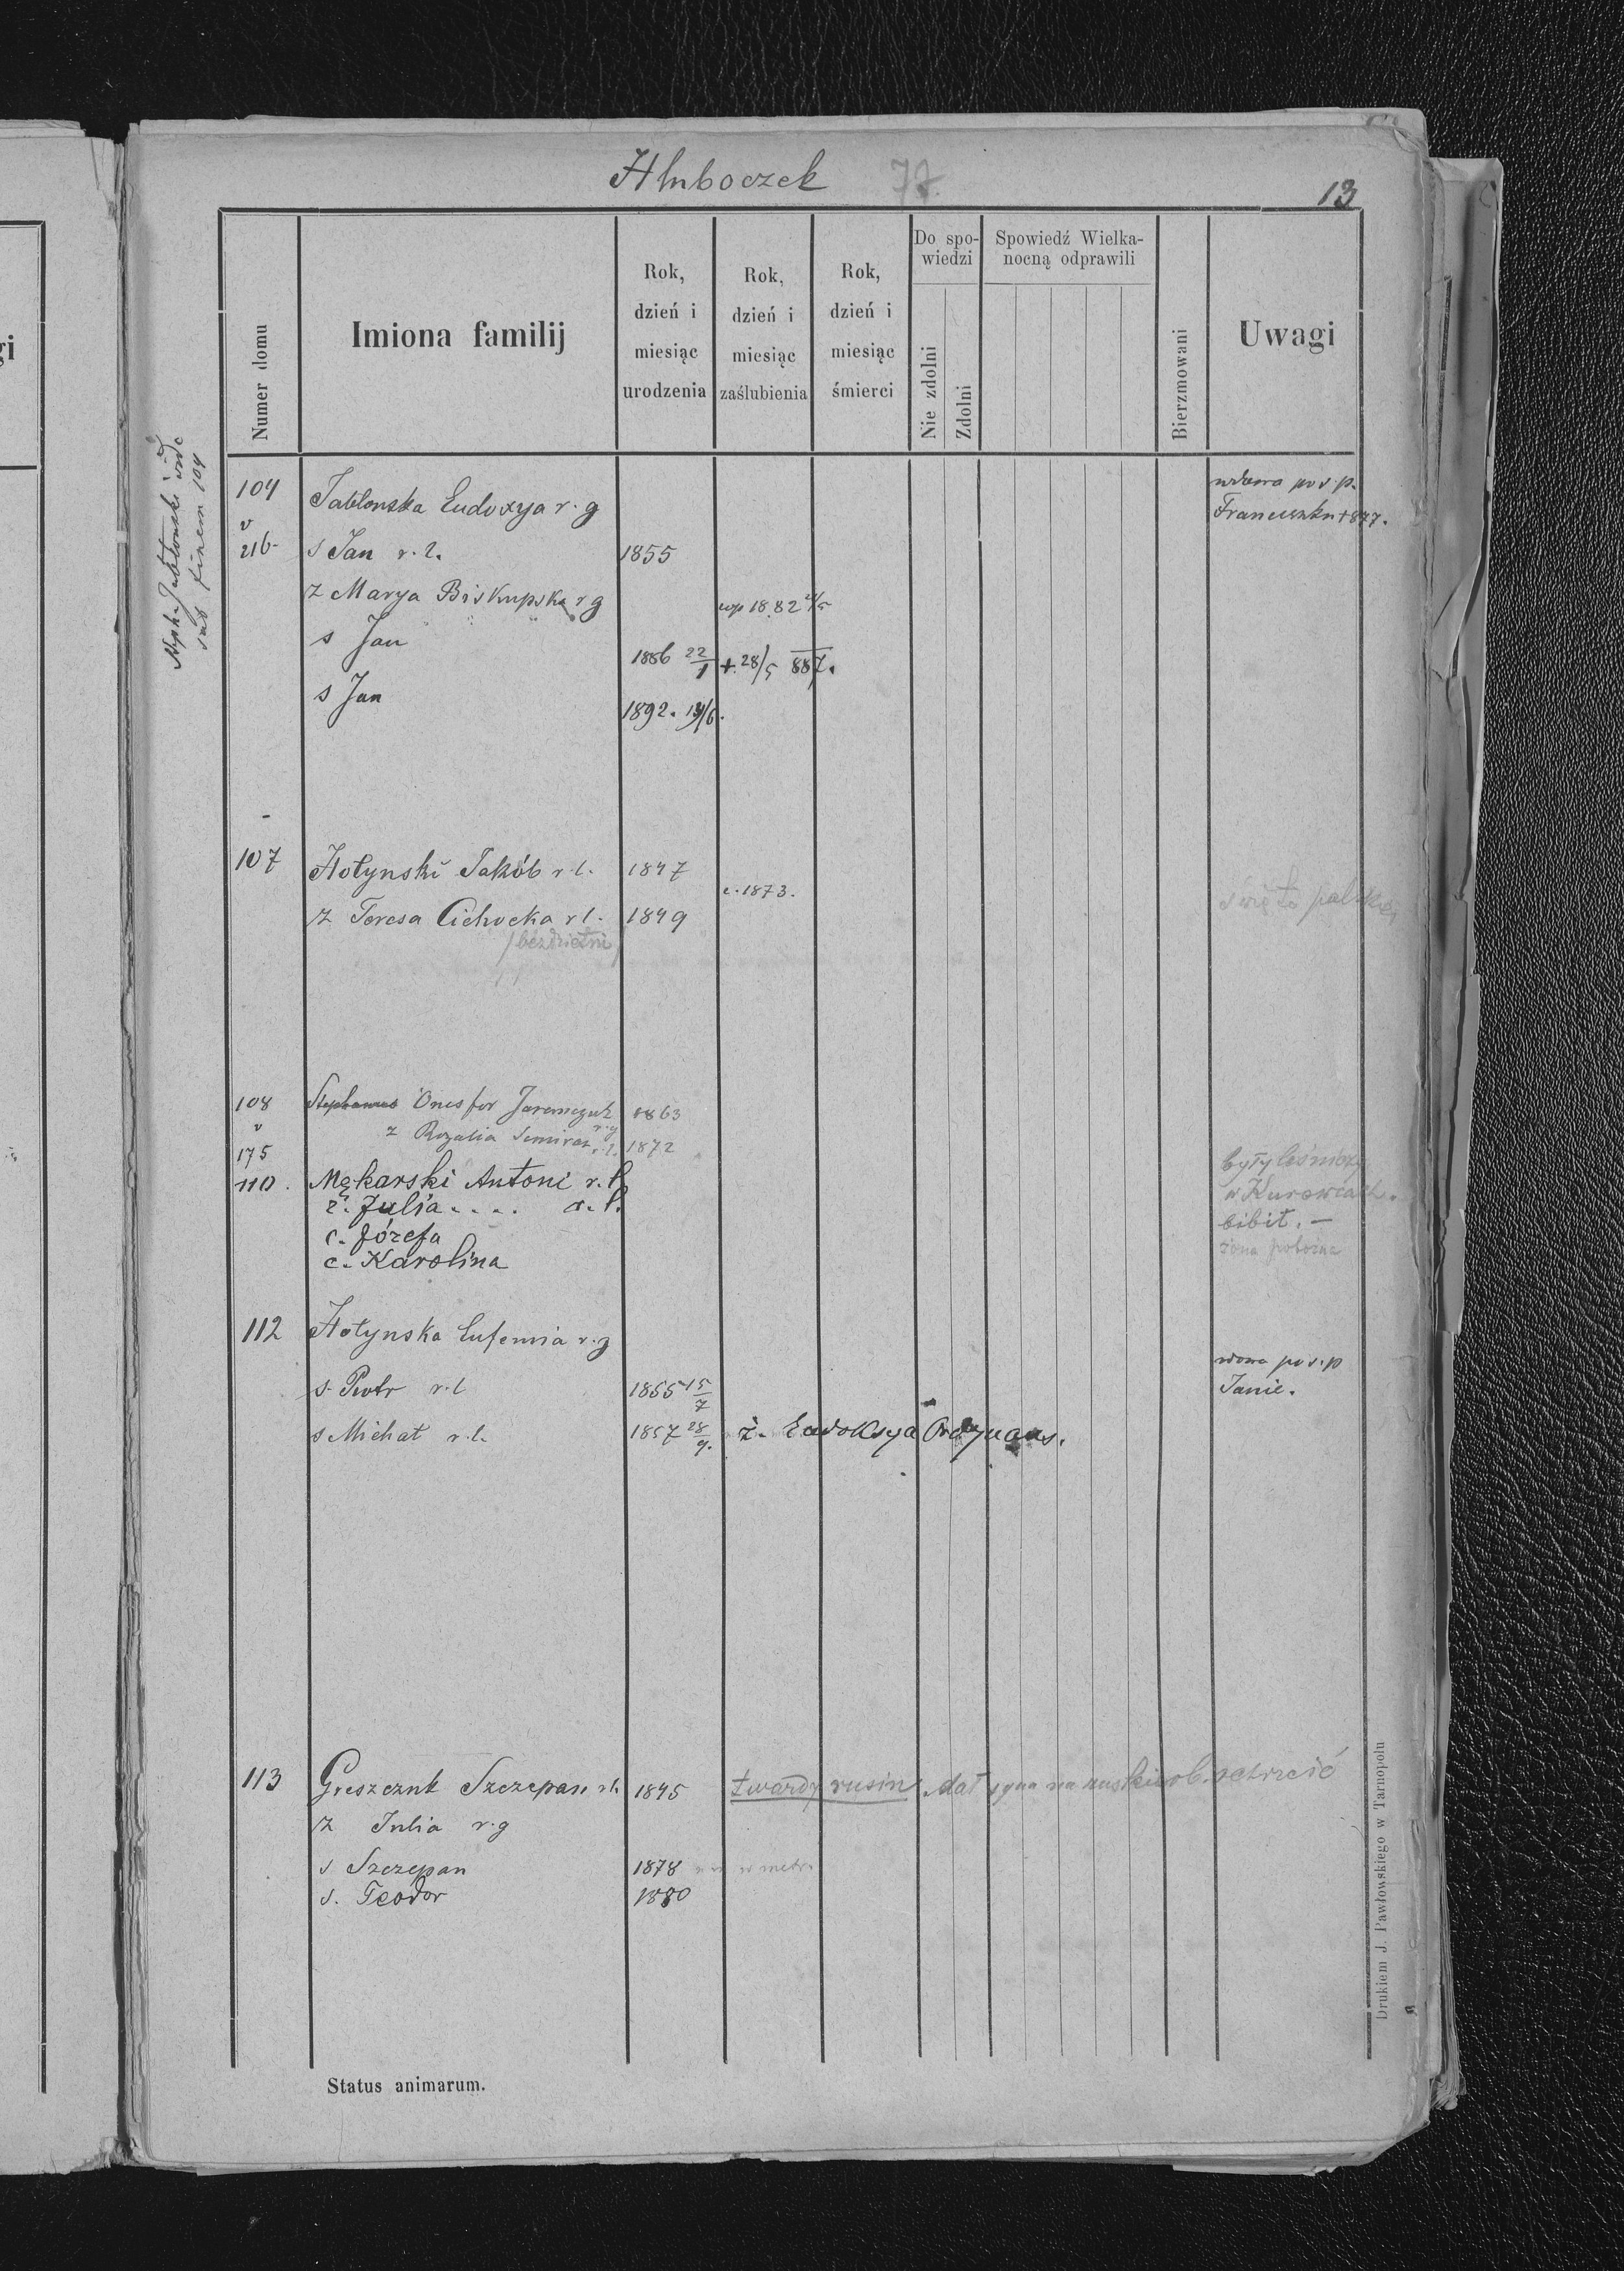 Hluboczek 77.
13
Numer domu
Imiona familij
Rok, dzień i miesiąc urodzenia
Rok, dzień i miesiąc zaślubienia
Rok, dzień i miesiąc śmierci
Do spowiedzi
Nie zdolni
Zdolni
Spowiedź Wielkanocną odprawili
Bierzmowani
Uwagi
Jabłonski vide
sub finem 104
104 Jabłonska Eudoxya r. g wdowa po ś. p.
v Franciszku + 877.
216 s Jan r. l. 1855
ż Marya Biskupska r g 1882
s Jan 1886 22/1 +. 28/5 887.
s Jan 1892.
107 Hołynski Jakób r. l. 1847
c. 1873.
ż Teresa Cichocka r l. 1849
/bezdzietni/
108 Stephanus Onesfor Jaremczuk r. g 1863
v ż Rozalia r. l. 1872
175
110. Mękarski Antoni r. l. były leśniczy
ż. Julia.... r. l. w Kurowcach.
c. Józefa bibit. —
c. Karolina żona pobożna
112 Hołynska Eufemia r. g
wdowa po ś. p
s. Piotr r. l 1855 15/7 Janie.
s Michał r. l. 1857 28/9. ż. Eudoksya Ordynans.
113 Greszczuk Szczepan r l. 1845 twardy rusin dał syna na ruskie ochrzcić
ż Julia r. g
s Szczepan 1878 w metr.
s. Teodor 1880
Status animarum.
Drukiem J. Pawłowskiego w Tarnopolu